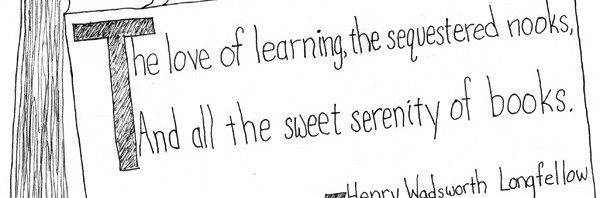 The love of learning, the sequestered nooks,
And all the sweet serenity of books.
Henry Wadsworth Longfellow